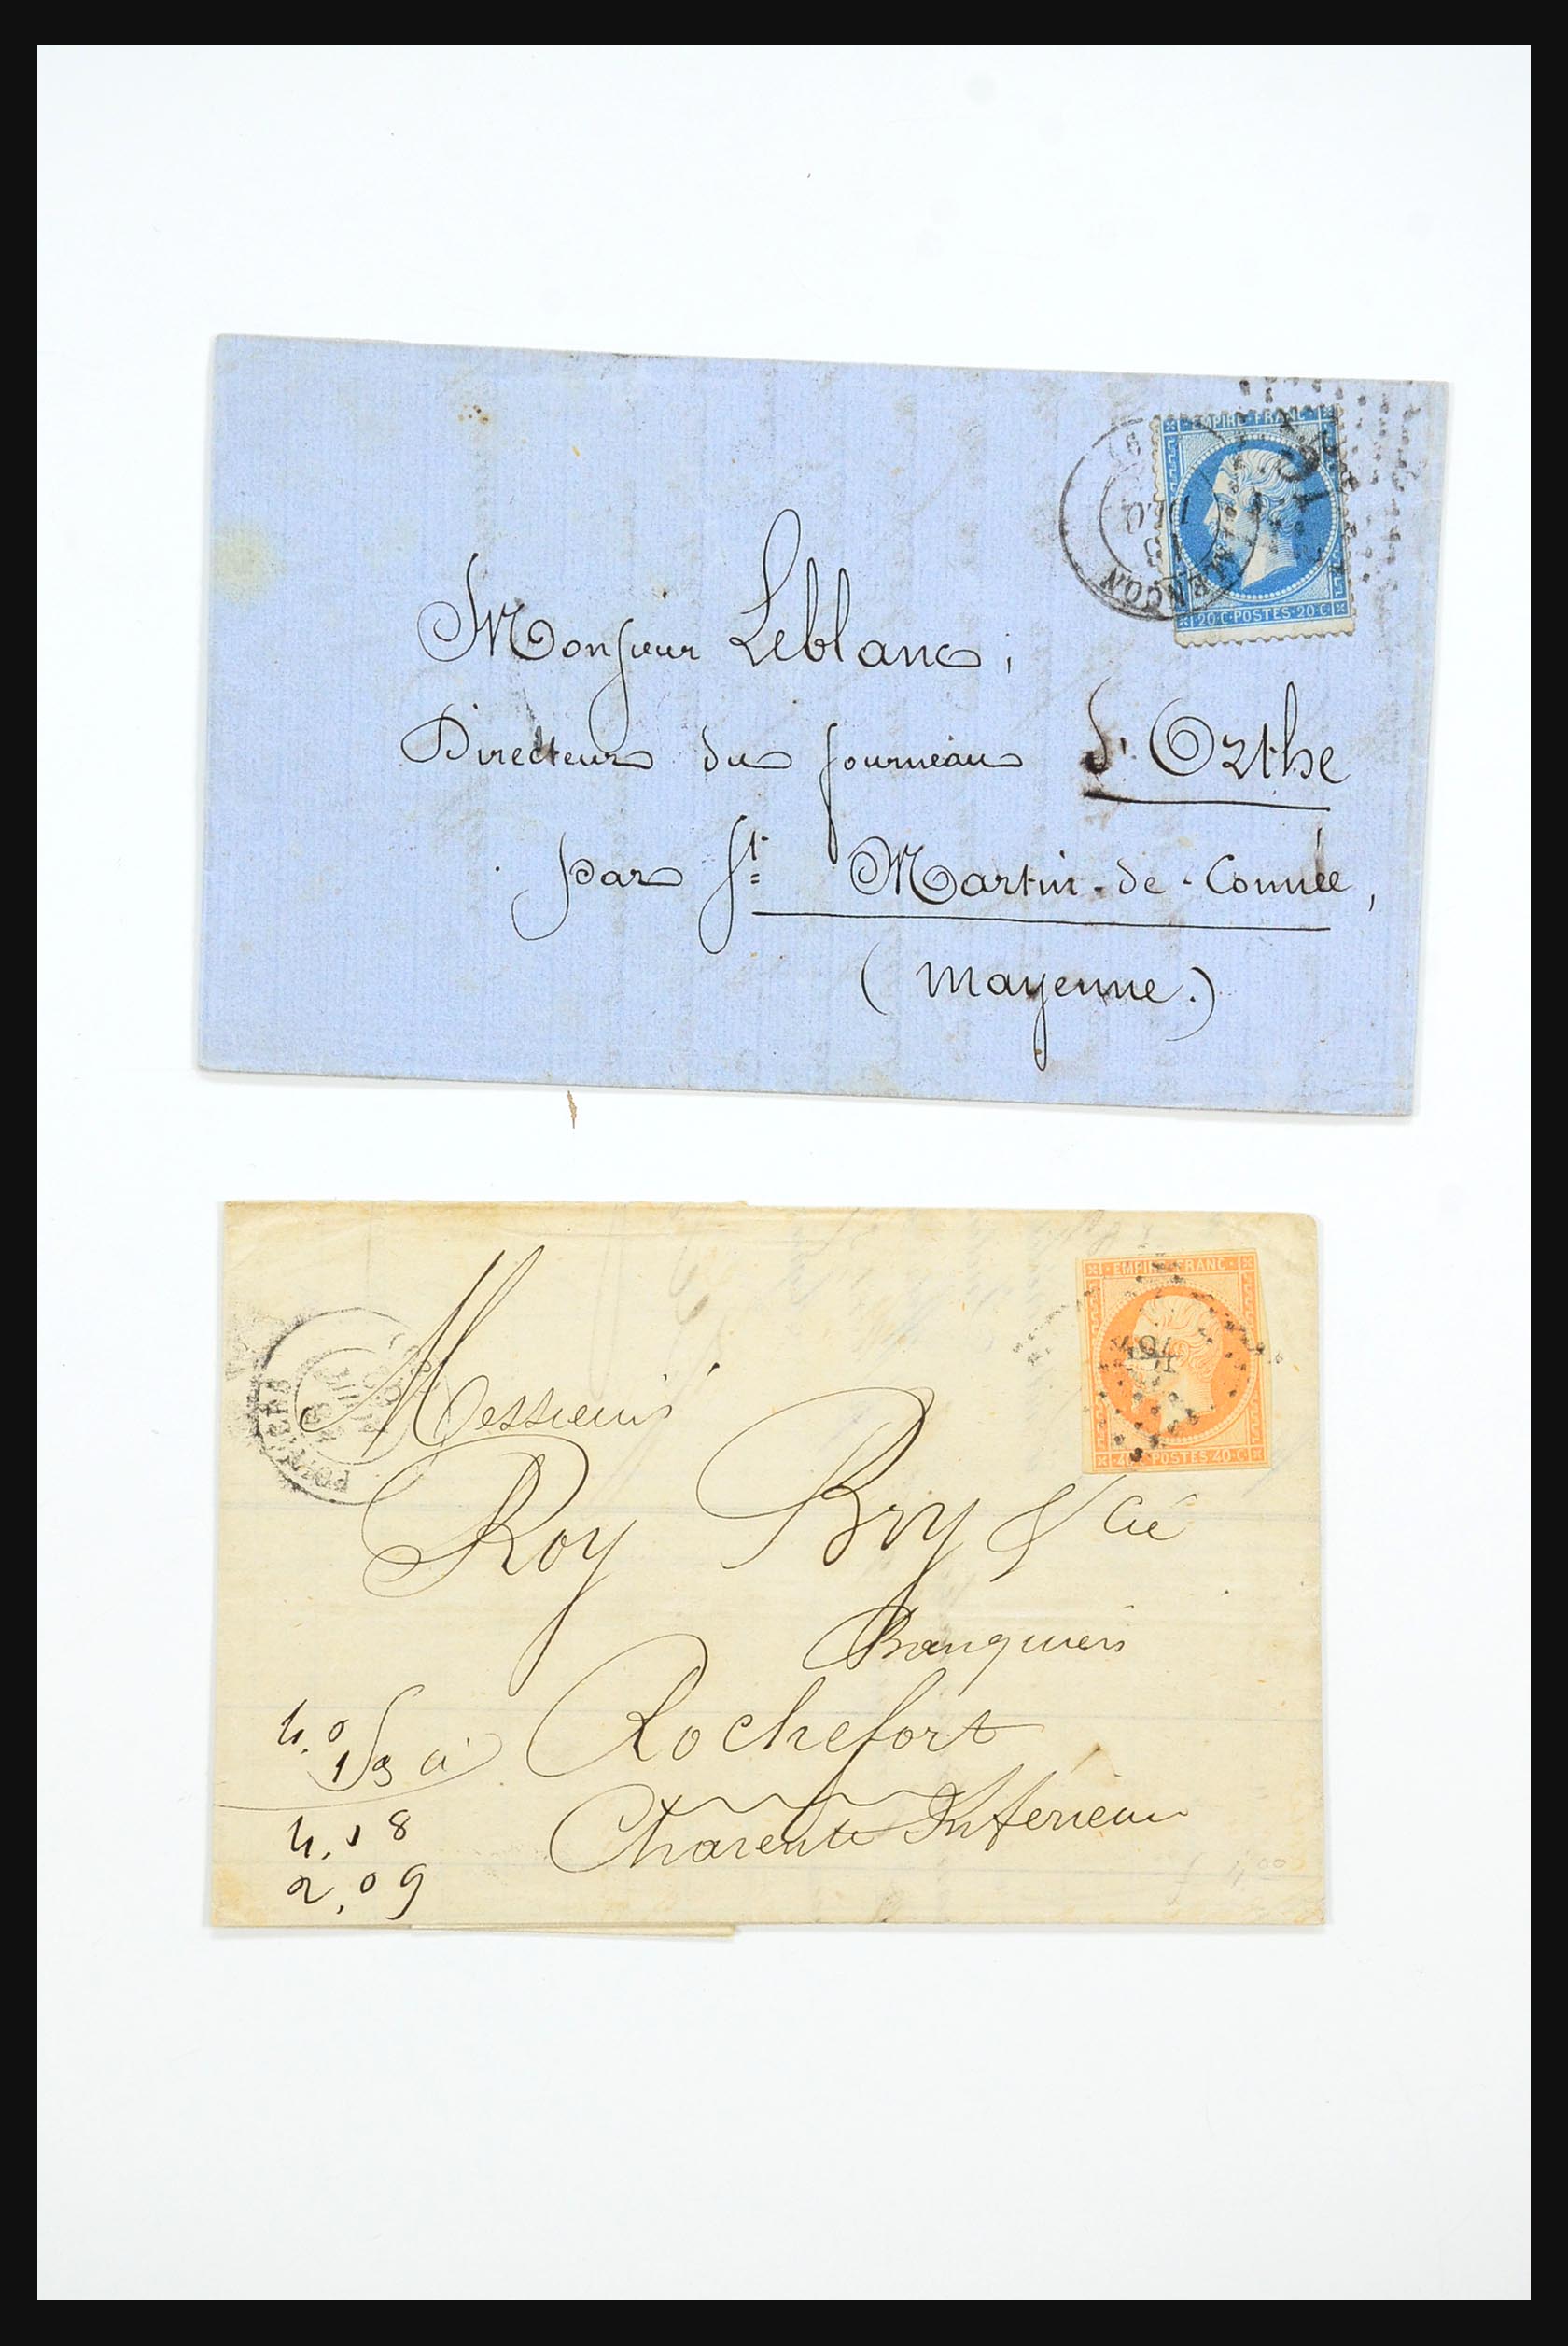 EMPIRE · FRANC
20 · C · POSTES · 20 · C
ALENÇON
Monsieur Leblanc,
Directeur du fourneau d'Orthe
par St. Martin-de-Connée,
(Mayenne.)
EMPIRE · FRANC
40 · C · POSTES · 40 · C
POITIERS
Messieurs
Roy Bry & Cie
Banquiers
Rochefort
Charente Inférieure
4.0
4.18
2.09